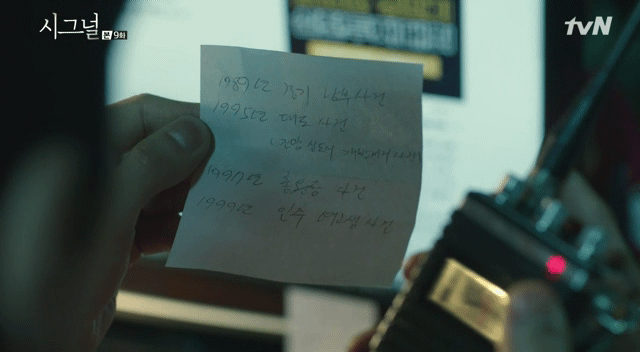 시그널
본 9화
tvN
1989년 경기 남부사건
1995년 대도 사건
1997년 홍원동 사건
1999년 인주 여고생 사건